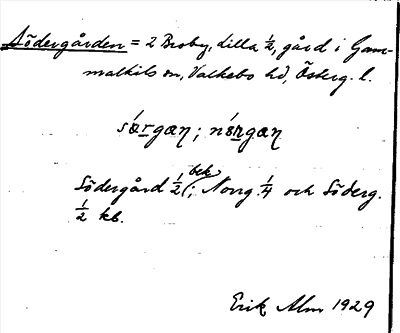 Södergården = 2 Broby, lilla ½, gård i Gam-
malkils sn, Valkebo hd, Österg. l.
sǿrgæn; nǿrgæn
bek
Södergård ½ (; Norrg. ¼ och Söderg.
½ kb.
Erik Alm 1929